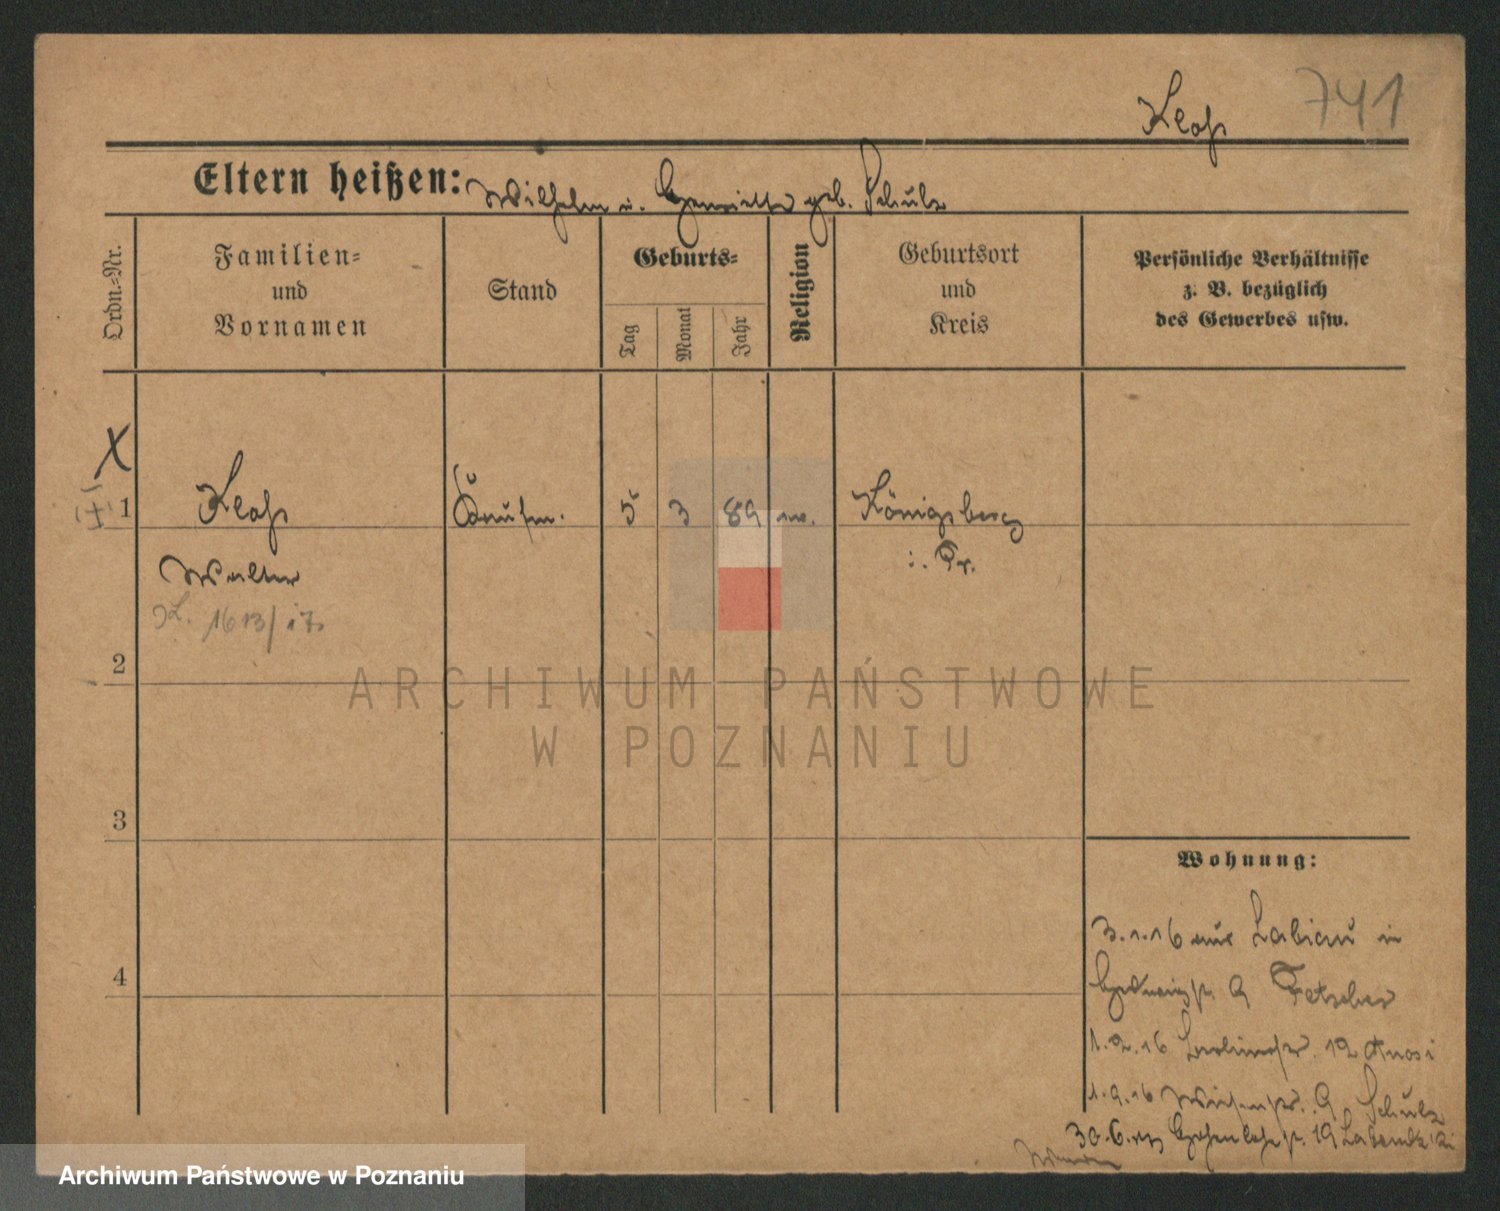 741
Kloß
Eltern heißen: Wilhelm u. Henriette geb. Schulz
Ordn.-Nr.
Familien-
und
Vornamen
Stand
Geburts-
Tag
Monat
Jahr
Religion
Geburtsort
und
Kreis
Persönliche Verhältnisse
z. B. bezüglich
des Gewerbes usw.
X
1 Kloß Kaufm. 5 3 89 ev. Königsberg
Walter i. Pr.
1613/17
2
ARCHIWUM PAŃSTWOWE
W POZNANIU
3
Wohnung:
3.1.16 aus Labiau in
4
Hedwigstr. 9 Fetscher
1.2.16 12
1.9.16 Wiesenstr. 9 Schulz
30.6. Hohenlohestr. 19
Archiwum Państwowe w Poznaniu